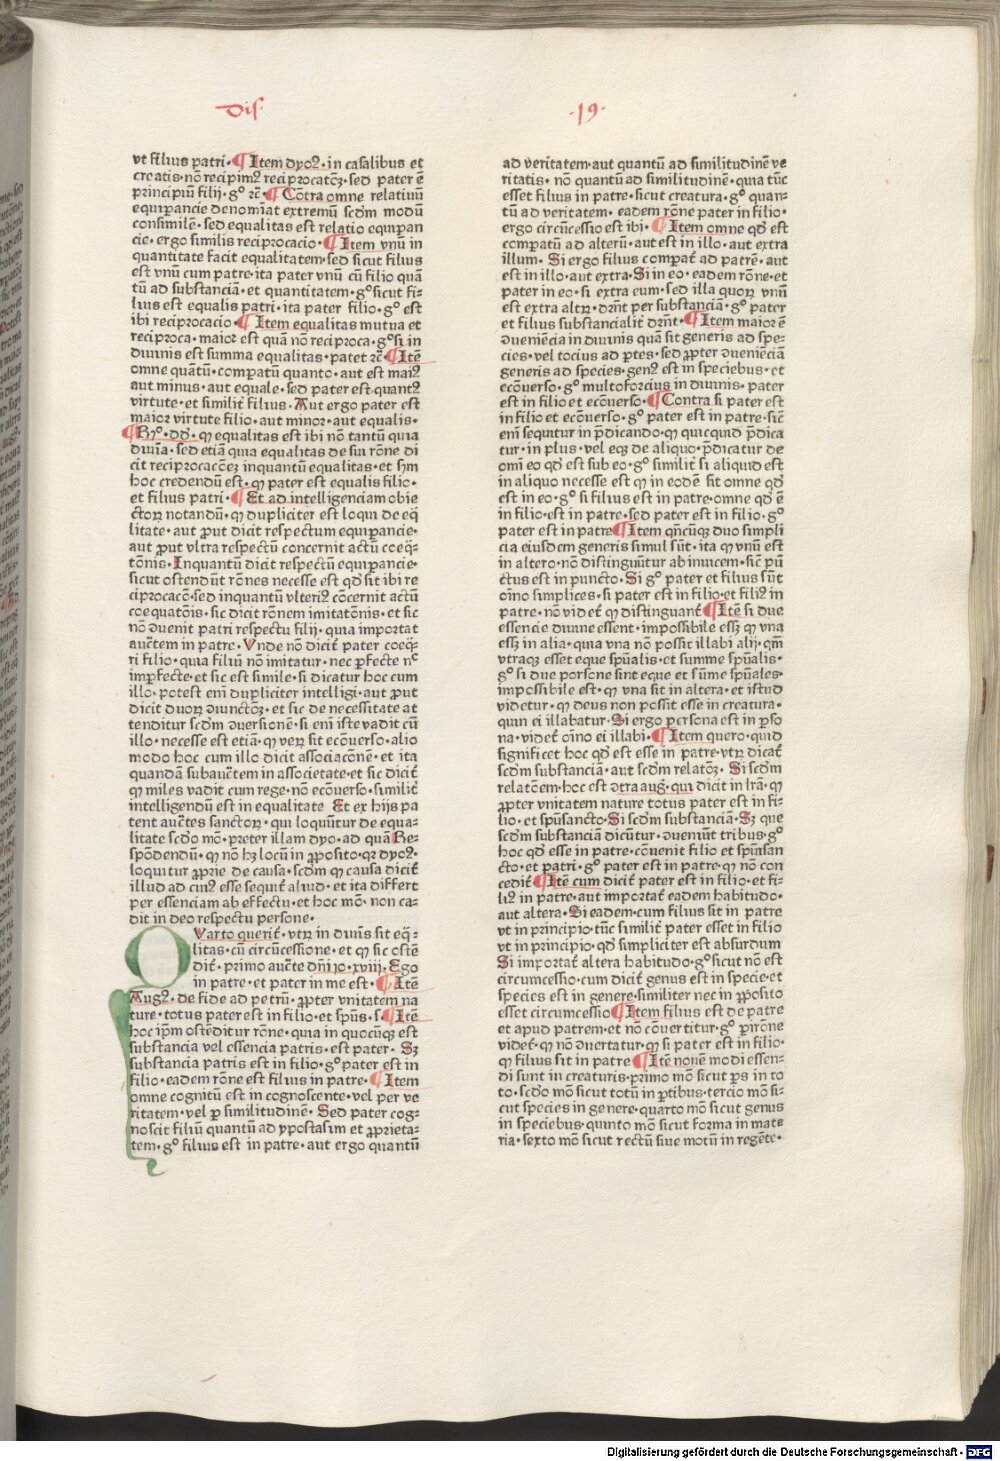 Dis. .19.
vt filius patri. ¶ Item dyoꝰ. in casalibus et
creatis. nō recipimꝰ reciprocatōꝫ. sed pater ē
principiū filij. gº rc̄. ¶ Cōtra omne relatiuū
equiparancie denomīat extremū scd̄m modū
consimilē. sed equalitas est relatio equiparan
cie. ergo similis reciprocacio. ¶ Item vnū in
quantitate facit equalitatem. sed sicut filius
est vnū cum patre. ita pater vnū cū filio quā
tū ad substanciā. et quantitatem. gº sicut fi⸗
lius est equalis patri. ita pater filio. gº est
ibi reciprocacio. ¶ Item equalitas mutua et
reciproca. maior est quā nō reciproca. gº si in
diuinis est summa equalitas. patet rc̄. ¶ Itē
omne quātū. compatū quanto. aut est maiꝰ
aut minus. aut equale. sed pater est quantꝰ
virtute. et similit̄ filius. Aut ergo pater est
maior virtute filio. aut minor. aut equalis.
¶ Rº. dd̄. ꝙ equalitas est ibi nō tantū quia
diuīa. sed etiā quia equalitas de sui rōne di
cit reciprocacōeꝫ inquantū equalitas. et hm̄
hoc credendū est. ꝙ pater est equalis filio.
et filius patri. ¶ Et ad intelligenciam obie
ctoꝝ notandū. ꝙ dupliciter est loqui de eq̄
litate. aut ꝓut dicit respectum equiparancie.
aut ꝓut vltra respectū concernit actū coeq̄⸗
tōnis. Inquantū dicit respectū equiparancie.
sicut ostendūt rōnes necesse est qd̄ sit ibi re
ciprocacō. sed inquantū vlteriꝰ cōcernit actū
coequatōnis. sic dicit rōnem imitatōnis. et sic
nō ↄuenit patri respectu filij. quia importat
auct̄em in patre. Vnde nō dicit̄ pater coeq̄⸗
ri filio. quia filiū nō imitatur. nec ꝑfecte nº
imꝑfecte. et sic est simile. si dicatur hoc cum
illo. potest eni dupliciter intelligi. aut ꝓut
dicit duoꝝ ↄiunctōꝫ. et sic de necessitate at
tenditur scd̄m ↄuersionē. si eni iste vadit cū
illo. necesse est etiā. ꝙ veꝝ sit ecōuerso. alio
modo hoc cum illo dicit associacōnē. et ita
quandā subauct̄em in associetate. et sic dicit̄
ꝙ miles vadit cum rege. nō ecōuerso. similit̄
intelligendū est in equalitate Et ex hijs pa
tent auct̄es sanctoꝝ. qui loquūtur de equa⸗
litate scdo mō. preter illam dyo. ad quā Re⸗
spōdendū. ꝙ nō hꝫ locū in ꝓposito. qꝛ dyoꝰ.
loquitur ꝓprie de causa. scd̄m ꝙ causa dicit̄
illud ad cuiꝰ esse sequit̄ aliud. et ita differt
per essenciam ab effectu. et hoc mō. non ca⸗
dit in deo respectu persone.
QVarto querit̄. vtꝝ in diuīs sit eq̄⸗
litas. cū circūcessione. et ꝙ sic ostē
dit̄. primo auct̄e dn̄i io. xviij. Ego
in patre. et pater in me est. ¶ Itē
Augꝰ. de fide ad petrū. ꝓpter vnitatem na
ture. totus pater est in filio. et spūs. s. ¶ Itē
hoc ip̄m ostēditur rōne. quia in quocūqꝫ est
substancia vel essencia patris. est pater. Sꝫ
substancia patris est in filio. gº pater est in
filio. eadem rōne est filius in patre. ¶ Item
omne cognitū est in cognoscente. vel per ve
ritatem. vel ꝑ similitudinē. Sed pater cog⸗
noscit filiū quantū ad ypostasim et ꝓprieta⸗
tem. gº filius est in patre. aut ergo quantū
ad veritatem. aut quantū ad similitudinē ve
ritatis. nō quantū ad similitudinē. quia tūc
esset filius in patre. sicut creatura. gº quan⸗
tū ad veritatem. eadem rōne pater in filio.
ergo circūcessio est ibi. ¶ Item omne qd̄ est
compatū ad alterū. aut est in illo. aut extra
illum. Si ergo filius compat̄ ad patrē. aut
est in illo. aut extra. Si in eo. eadem rōne. et
pater in eo. si extra eum. sed illa quoꝝ vnū
est extra altꝝ. dr̄nt per substanciā. gº pater
et filius substancialit̄ dr̄nt. ¶ Item maior ē
ↄueniēcia in diuinis quā sit generis ad spe⸗
cies. vel tocius ad ꝑtes. sed ꝓpter ↄueniēciā
generis ad species. genꝰ est in speciebus. et
ecōuerso. gº multoforcius in diuinis. pater
est in filio et ecōuerso. ¶ Contra si pater est
in filio et ecōuerso. gº pater est in patre. sic̄
eni sequitur in p̄dicando. ꝙ quicquid p̄dica
tur. in plus. vel eqꝫ de aliquo. p̄dicatur de
om̄i eo qd̄ est sub eo. gº similit̄ si aliquid est
in aliquo necesse est ꝙ in eodē sit omne qd̄
est in eo. gº si filius est in patre. omne qd̄ ē
in filio. est in patre. sed pater est in filio. gº
pater est in patre ¶ Item qn̄cūqꝫ duo simpli
cia eiusdem generis simul sūt. ita ꝙ vnū est
in altero. nō distinguūtur abinuicem. sic̄ pū
ctus est in puncto. Si gº pater et filius sūt
oīno simplices. si pater est in filio. et filiꝰ in
patre. nō videt̄ ꝙ distinguant̄ ¶ Itē si due
essencie diuine essent. impossibile essꝫ ꝙ vna
essꝫ in alia. quia vna nō possit illabi alij. qm̄
vtraqꝫ esset eque spūalis. et summe spūalis.
gº si due persone sint eque et sūme spūales.
impossibile est. ꝙ vna sit in altera. et istud
videtur. ꝙ deus non possit esse in creatura.
quin ei illabatur. Si ergo persona est in ꝑso
na. videt̄ oīno ei illabi. ¶ Item quero. quid
significet hoc qd̄ est esse in patre. vtꝝ dicat̄
scd̄m substanciā. aut scd̄m relatōꝫ. Si scd̄m
relatōem. hoc est ↄtra aug. qui dicit in lrā. ꝙ
ꝓpter vnitatem nature totus pater est in fi⸗
lio. et spūsancto. Si scd̄m substanciā. Sꝫ que
scd̄m substanciā dicūtur. ↄueniūt tribus. gº
hoc qd̄ esse in patre. cōuenit filio et spūisan
cto. et patri. gº pater est in patre. ꝙ nō con
cedit̄ ¶ Itē cum dicit̄ pater est in filio. et fi⸗
liꝰ in patre. aut importat̄ eadem habitudo.
aut altera. Si eadem. cum filius sit in patre
vt in principio. tūc similit̄ pater esset in filio
vt in principio. qd̄ simpliciter est absurdum
Si importat̄ altera habitudo. gº sicut nō est
circumcessio. cum dicit̄ genus est in specie. et
species est in genere. similiter nec in ꝓposito
esset circumcessio ¶ Item filius est de patre
et apud patrem. et nō cōuertitur. gº pirōne
videt̄. ꝙ nō ↄuertatur. ꝙ si pater est in filio.
ꝙ filius sit in patre ¶ Itē nouē modi essen⸗
di sunt in creaturis. primo mō sicut ꝑs in to
to. scdo mō sicut totū in ꝑtibus. tercio mō si⸗
cut species in genere. quarto mō sicut genus
in speciebus. quinto mō sicut forma in mate
ria. sexto mō sicut rectū siue motū in regēte.
Digitalisierung gefördert durch die Deutsche Forschungsgemeinschaft - DFG